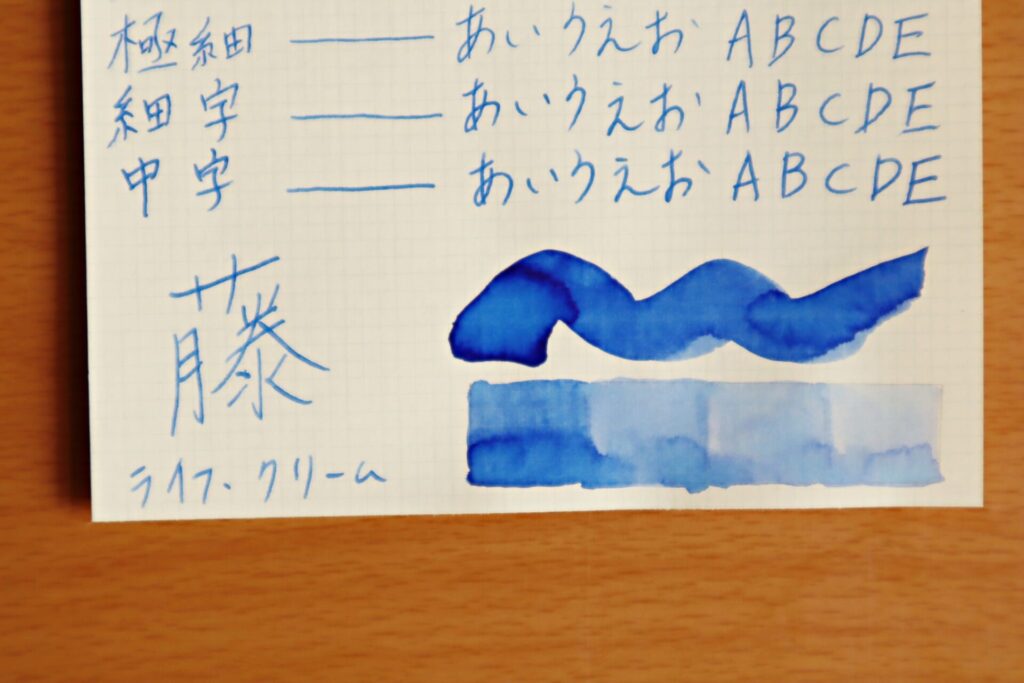 極細 あいうえお ABCDE
細字 あいうえお ABCDE
中字 あいうえお ABCDE
藤
ライフ・クリーム